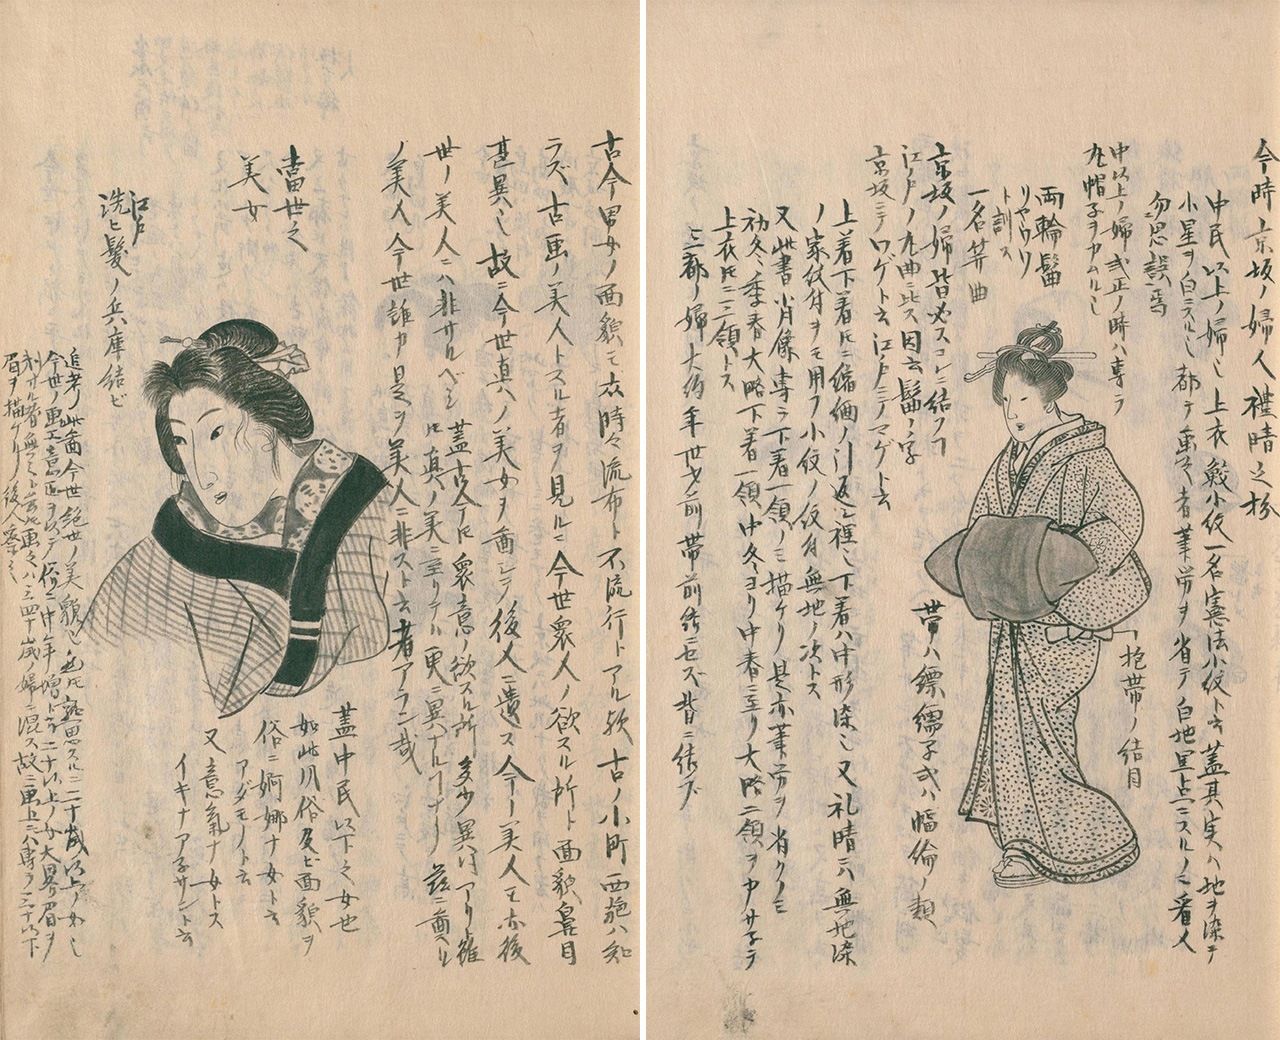 今時京坂ノ婦人禮晴之扮
中民以上ノ婦也上衣鮫小紋一名憲法小紋ト云蓋其実ハ地ヲ染テ
小星ヲ白ニスル也都テ画ク者筆労ヲ省テ白地黒点ニスルノミ看人
勿思誤焉
中以上ノ婦式正ノ時ハ専ラ
丸帽子ヲカムル也
両輪髷
リヤウワ
ト訓ス
一名笄曲
京坂ノ婦皆必ズコレニ結フコ
江戸ノ丸曲ニ比ス因云髷ノ字
京坂ニテワゲト云江戸ニテマゲト云
抱帯ノ結目
帯ハ縹繻子或ハ幅倫ノ類
上着下着比ニ縮緬ノ引返シ裡也下着ハ中形染也又礼晴ニハ無地染
ノ家紋付ヲモ用フ小紋ノ紋付無地ノ次トス
又此書肖像専ラ下着一領ノミ描ケリ是亦筆労ヲ省クノミ
初冬季春大略下着一領中冬ヨリ中春ニ至リ大略二領ヲカサ子テ
上衣比ニ三領トス
三都ノ婦大約年廿才前帯前結ニセズ背ニ結ブ
古今男女ノ面貌モ亦時々流布ト不流行トアル歟古ノ小町西施ハ知
ラズ古画ノ美人トスル者ヲ見ルニ今世衆人ノ欲スル所ト面貌鼻目
甚異也故ニ今世真ノ美女ヲ画シテ後人ニ遺ス今ノ美人モ亦後
世ノ美人ニハ非サルベシ蓋古今比衆意ノ欲スル所多少異同アリト雖
比真ノ美ニ至リテハ更ニ異ナルコナリ茲ニ画ル
ノ美人今世誰カ是ヲ美人ニ非スト云者アラン哉
當世之
美女
江戸
洗ヒ髪ノ兵庫結ビ
蓋中民以下之女也
如此風俗及ビ面貌ヲ
俗ニ婀娜ナ女ト云
アダモノト云
又意氣ナ女トス
イキナア子サント云
追考此画今世絶世ノ美貌也
今世ノ画工意匠ヲ以テ
眉ヲ描ケリ後人察之